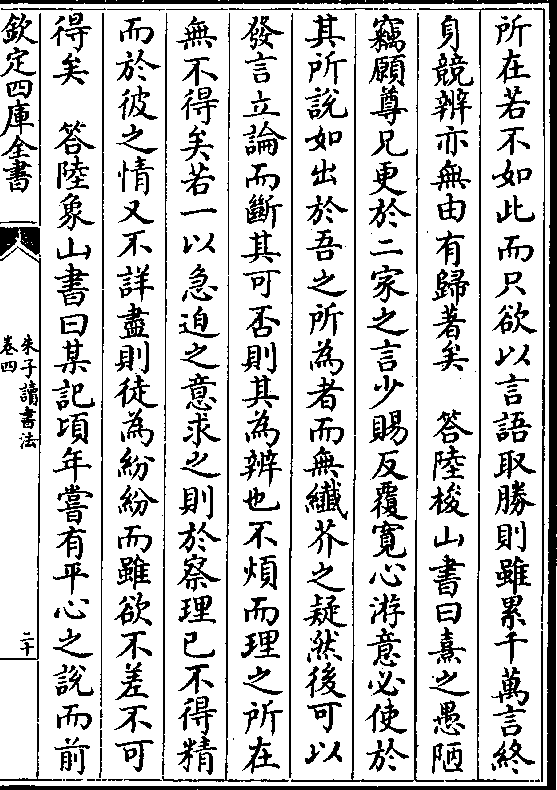 所在若不如此而只欲以言語取勝則雖累千萬言終
身競辨亦無由有歸著矣　答陸梭山書曰熹之愚陋
竊願尊兄更於二家之言少賜反覆寛心游意必使於
其所說如出於吾之所為者而無纖芥之疑然後可以
發言立論而斷其可否則其為辨也不煩而理之所在
無不得矣若一以急迫之意求之則於察理已不得精
而於彼之情又不詳盡則徒為紛紛而雖欲不差不可
得矣　答陸象山書曰某記頃年嘗有平心之說而前
欽定四庫全書
朱子讀書法
卷四
二十